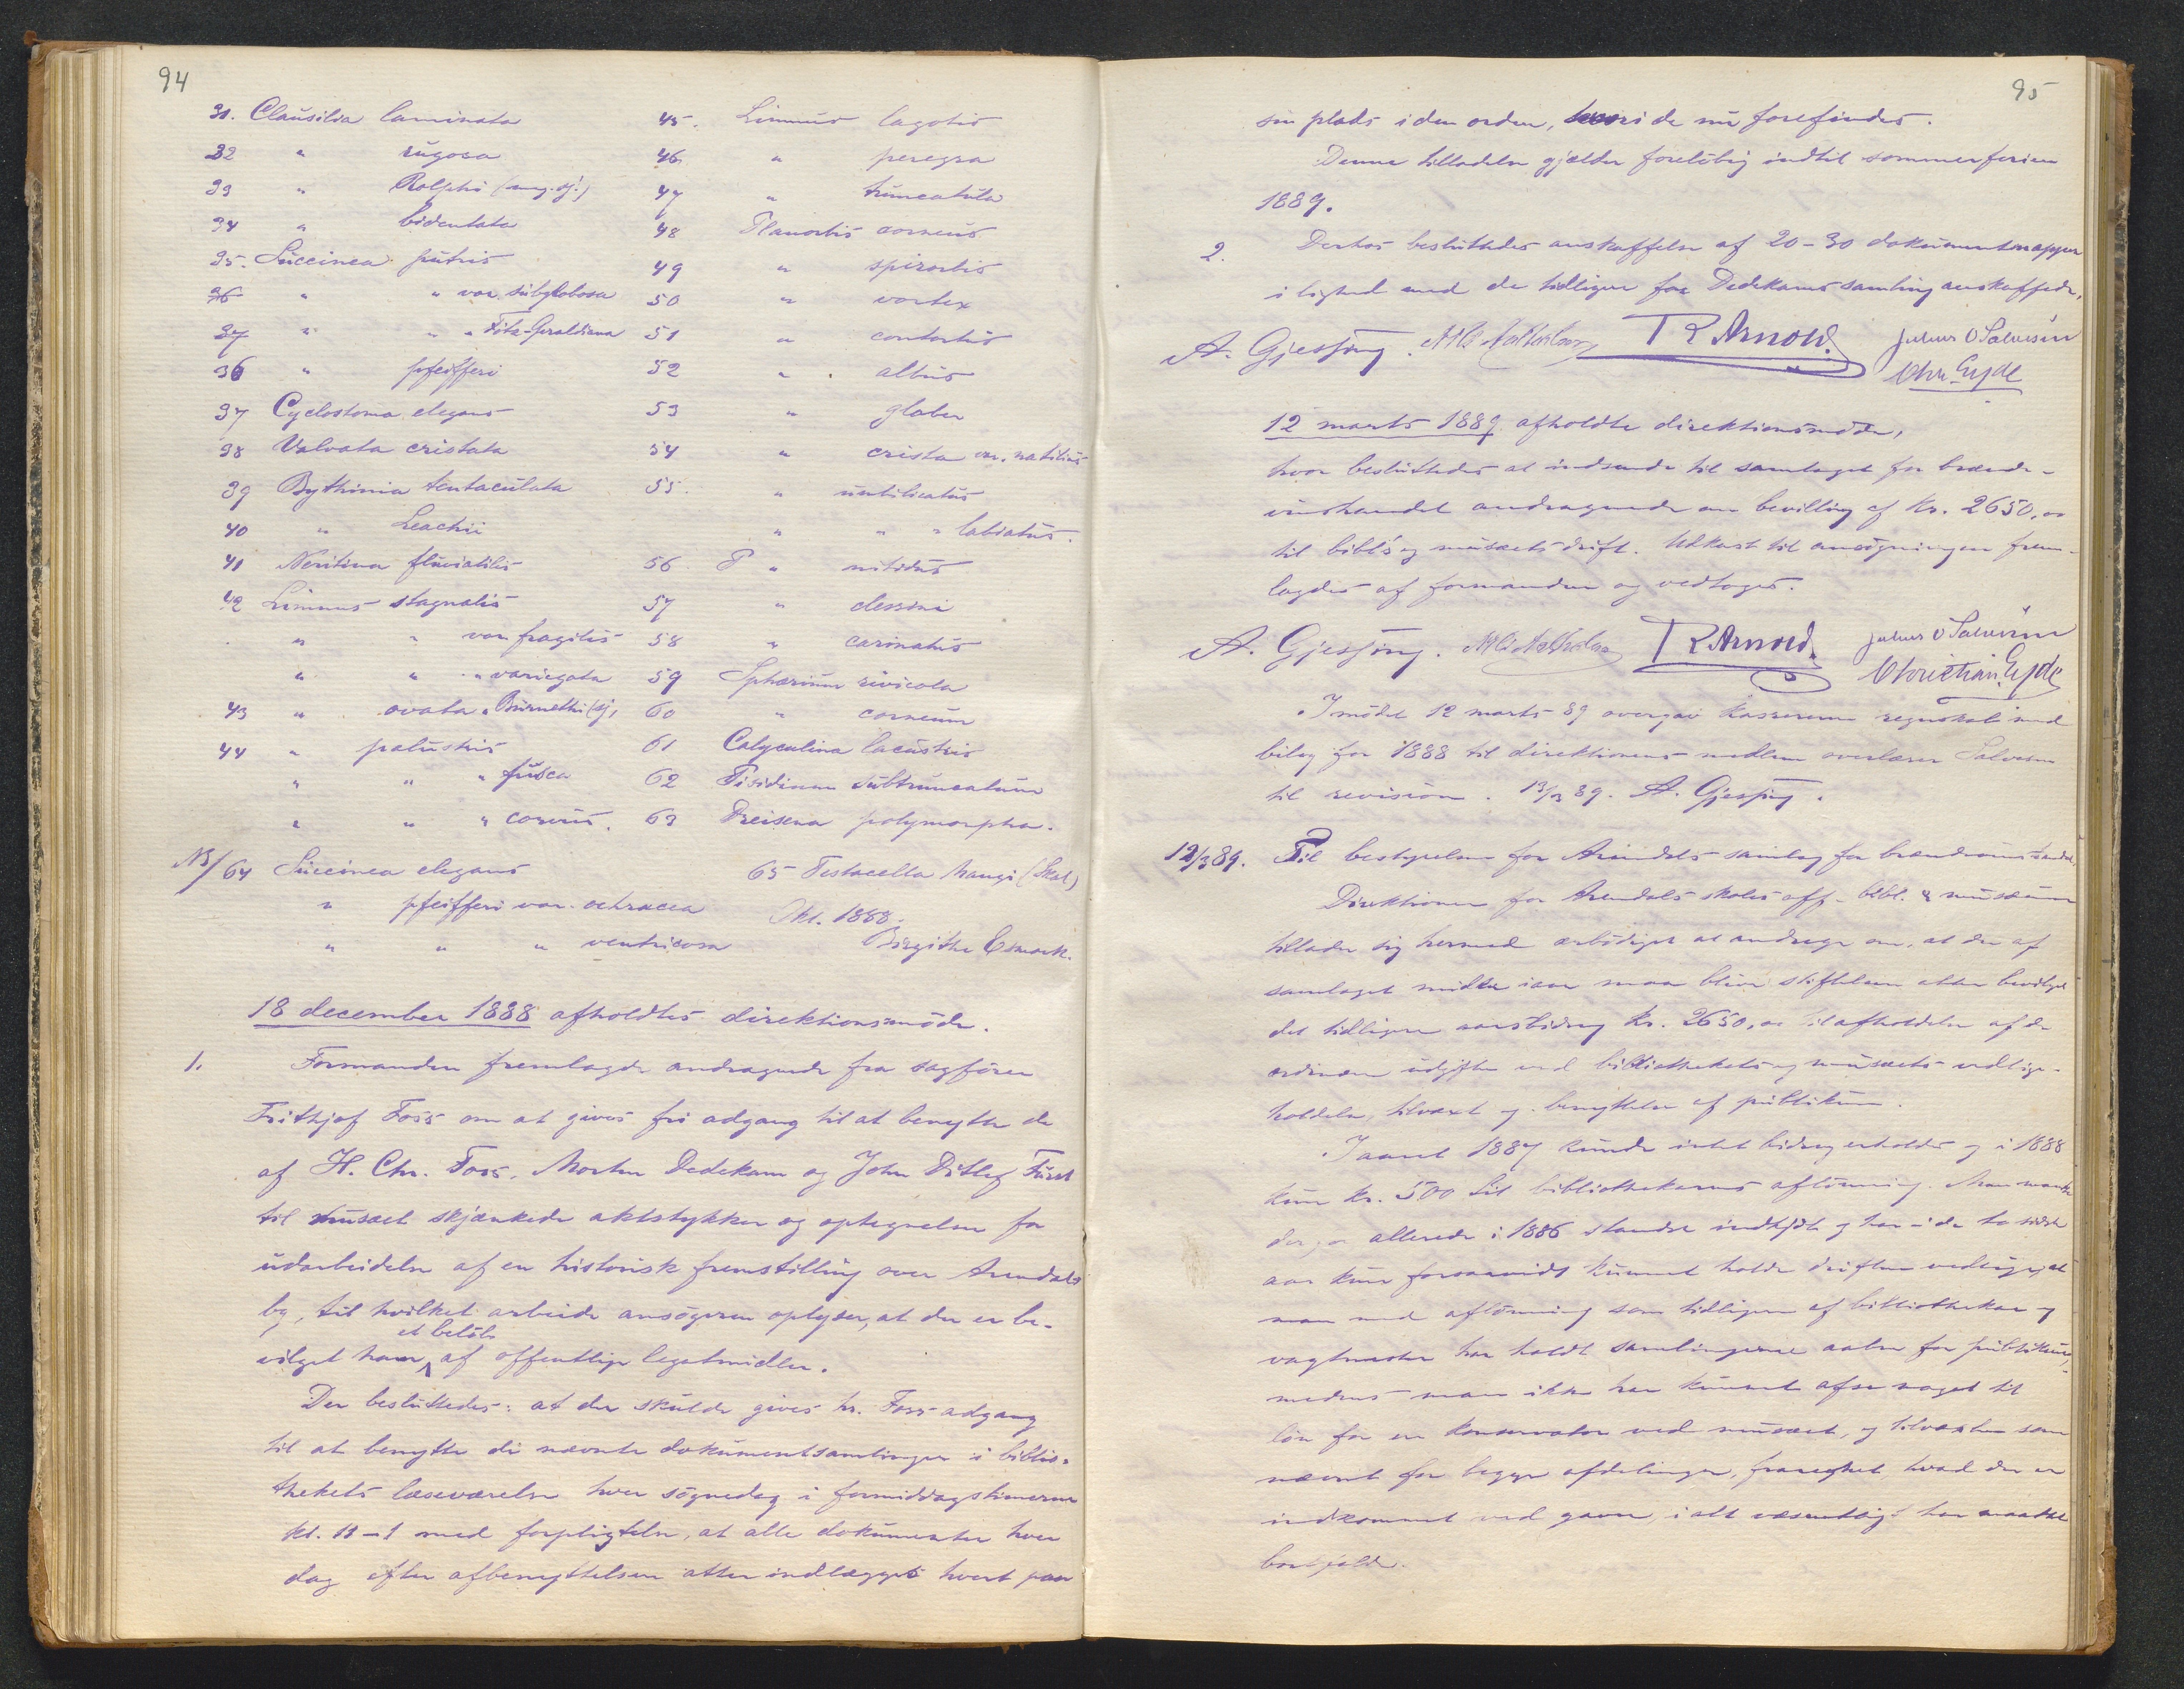 94
31. Clausilia laminata
32 " rugosa
33 " Rolphi (ang. sj.)
34 " bidentata
35. Succinea putris
36 " " var. subglobosa
37 " " " Fitz-Geraldiana
36 " pfeifferi
37 Cyclostoma elegans
38 Valvata cristata
39 Bythinia tentaculata
40 " Leachii
41 Neritina fluviatilis
42 Limnus stagnalis
" " var. fragilis
" " " variegata
43 " ovata " Burnetti (sj.)
44 " palustris
" " " fusca
" " " corvus.
45. Limnus lagotis
46 " peregra
47 " truncatula
48 Planorbis corneus
49 " spirorbis
50 " vortex
51 " contortus
52 " albus
53 " glaber
54 " crista var. nautileus
55. " umbilicatus
" " " labiatus.
56 P " nitidus
57 " clessini
58 " carinatus
59 Sphærium rivicola
60 " corneum
61 Calyculina lacustris
62 Pisidium subtruncatum
63 Dreisena polymorpha.
NB/ 64 Succinea elegans 65 Testacella Maugi (Skal)
" pfeifferi var. ochracea Okt. 1888.
" " " ventricosa Birgithe Esmark.
18 december 1888 afholdtes direktionsmöde.
1. Formanden fremlagde andragende fra sagförer
Frithjof Foss om at gives fri adgang til at benytte de
af H. Chr. Foss, Morten Dedekam og John Ditlef Fürst
til musæet skjænkede aktstykker og optegnelser for
udarbeidelse af en historisk fremstilling over Arendals
by, til hvilket arbeide ansögeren oplyser, at der er be-
et belöb
vilget ham af offentlige legatmidler.
Der besluttedes: at der skulde gives hr. Foss adgang
til at benytte de nævnte dokumentsamlinger i biblio-
thekets læseværelse hver sögnedag i formiddagstimerne
kl. 11-1 med forpligtelse, at alle dokumenter hver
dag efter afbenyttelsen atter indlægges hvert paa
95
sin plads i den orden, hvori de nu forefindes.
Denne tilladelse gjælder forelöbig indtil sommerferien
1889.
2. Derhos besluttedes anskaffelse af 20-30 dokumentmapper
i lighed med de tidligere for Dedekams samling anskaffede.
A. Gjessing. R Arnold. Julius O Salvesen
Chr. Eyde
12 marts 1889 afholdtes direktionsmöde,
hvor besluttedes at indsende til samlaget for brænde-
vinshandel andragende om bevilling af Kr. 2650,00
til bibl's og musæets drift. Udkast til ansögningen frem-
lagdes af formanden og vedtoges.
A. Gjessing. R Arnold. Julius O Salvesen
Christian Eyde
I mödet 12 marts 89 overgav kassereren regnskab med
bilag for 1888 til direktionens medlem overlærer Salvesen
til revision. 13/3 89. A. Gjessing.
12/3 89. Til bestyrelsen for Arendals samlag for brændevinshandel.
Direktionen for Arendals skoles off. bibl. & musæum
tillader sig herved ærbödigst at andrage om, at der af
samlagets midler iaar maa blive stiftelsen atter bevilget
det tidligere aarsbidrag Kr. 2650,00 til afholdelse af de
ordinære udgifter ved bibliothekets og musæets vedlige-
holdelse, tilvæxt og benyttelse af publikum.
I aaret 1887 kunde intet bidrag erholdes og i 1888
kun kr. 500 til bibliothekarens aflönning. Man maatte
derfor allerede i 1886 standse indkjöb og har i de to sidste
aar kun forsaavidt kunnet holde driften vedlige, at
man med aflönning som tidligere af bibliothekar og
vagtmester har holdt samlingerne aabne for publikum,
medens man ikke har kunnet afse noget til
lön for en konservator ved musæet, og tilvæxten som
nævnt for begge afdelinger, fraregnet hvad der er
indkommet ved gaver, i alt væsentligt har maattet
bortfalde.